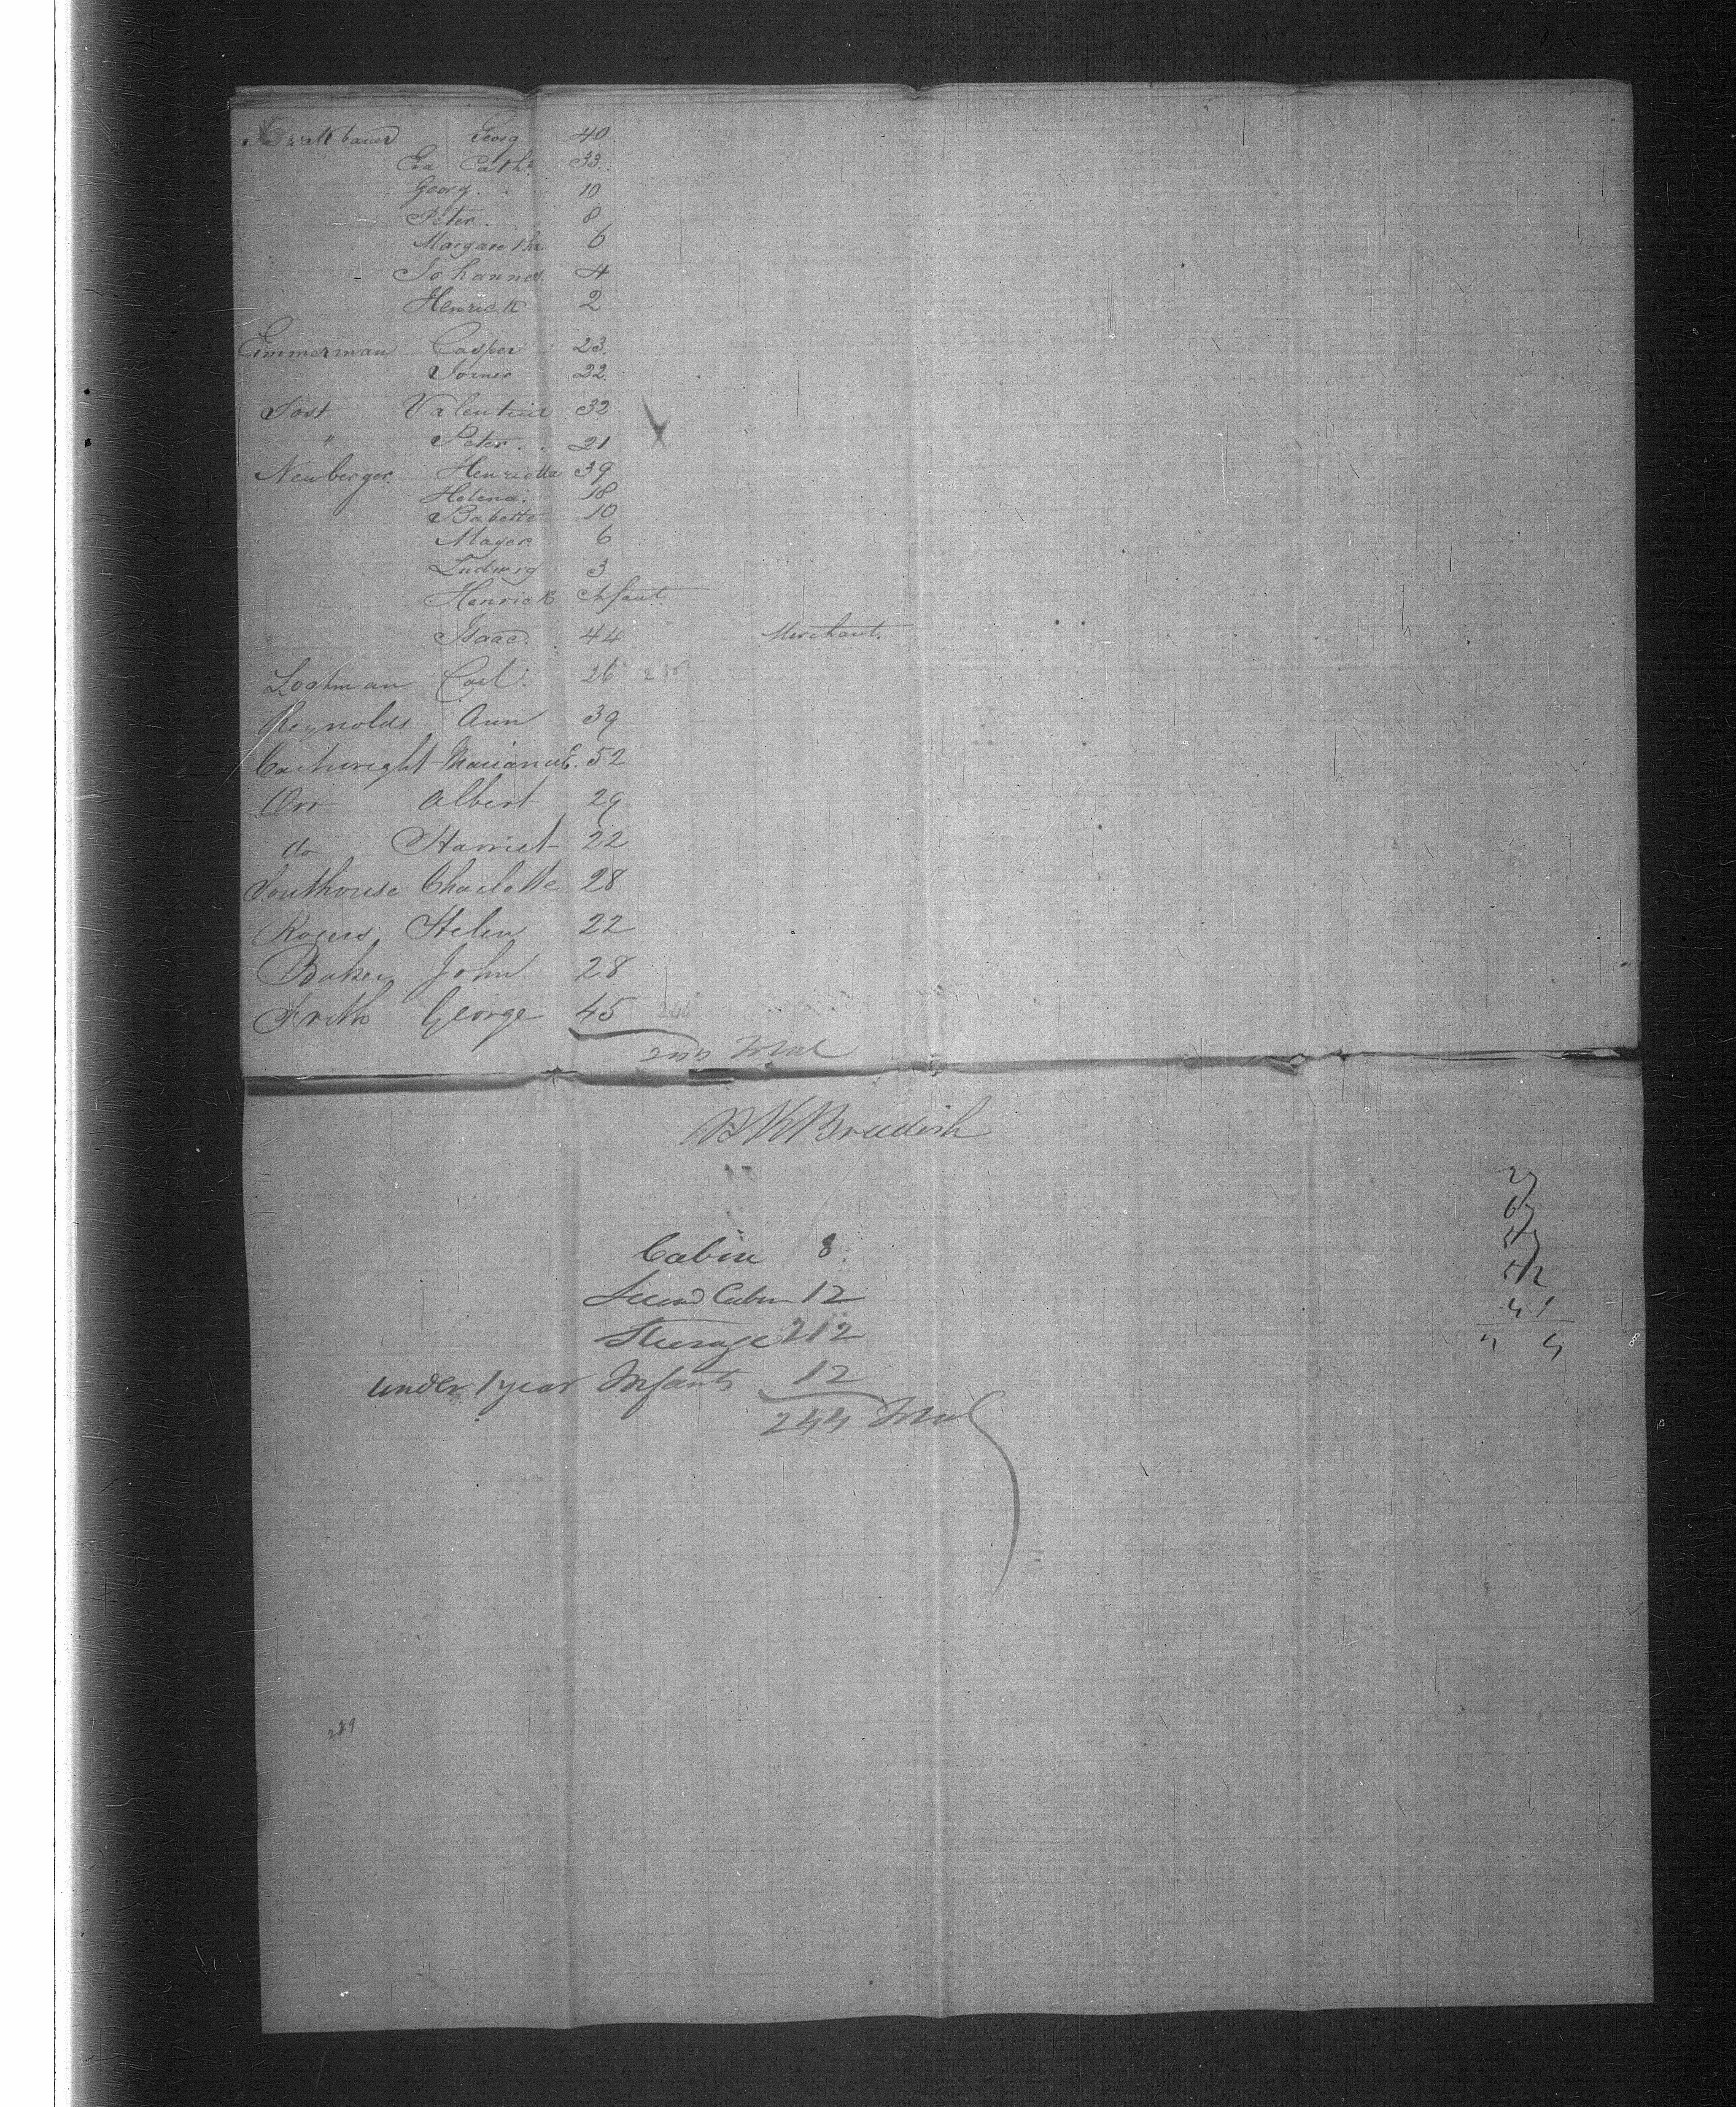 Georg 40
Eva Cath. 33
Georg 10
Peter 8
Margaretha 6
Johannes 4
Henrick 2
Zimmerman Casper 23
22
Jost Valentin 32
" Peter 21
Neuberger Henrietta 39
Helena 18
Babette 10
Mayer 6
Ludwig 3
Henrick Infant
Isaac 44 Merchant
Carl 26 238
Reynolds Ann 39
Cartwright Marianne E. 52
Orr Albert 29
do Harriet 22
Southouse Charlotte 28
Rogers Helen 22
Baker John 28
Frith George 45
Total
Bradish
Cabin 8
Second Cabin 12
Steerage 212
under 1 year Infants 12
244 Total